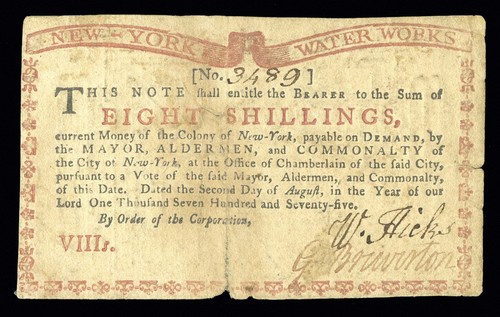 NEW-YORK WATER WORKS
[No. 3489]
THIS NOTE shall entitle the BEARER to the Sum of
EIGHT SHILLINGS,
current Money of the Colony of New-York, payable on DEMAND, by
the MAYOR, ALDERMEN, and COMMONALTY of
the City of N.w-York, at the Office of Chamberlain of the said City,
pursuant to a Vote of the said Mayor, Aldermen, and Commonalty,
of this Date. Dated the Second Day of August, in the Year of our
Lord One Thousand Seven Hundred and Seventy-five.
By Order of the Corporation,
W. Hicks
VIIIs.